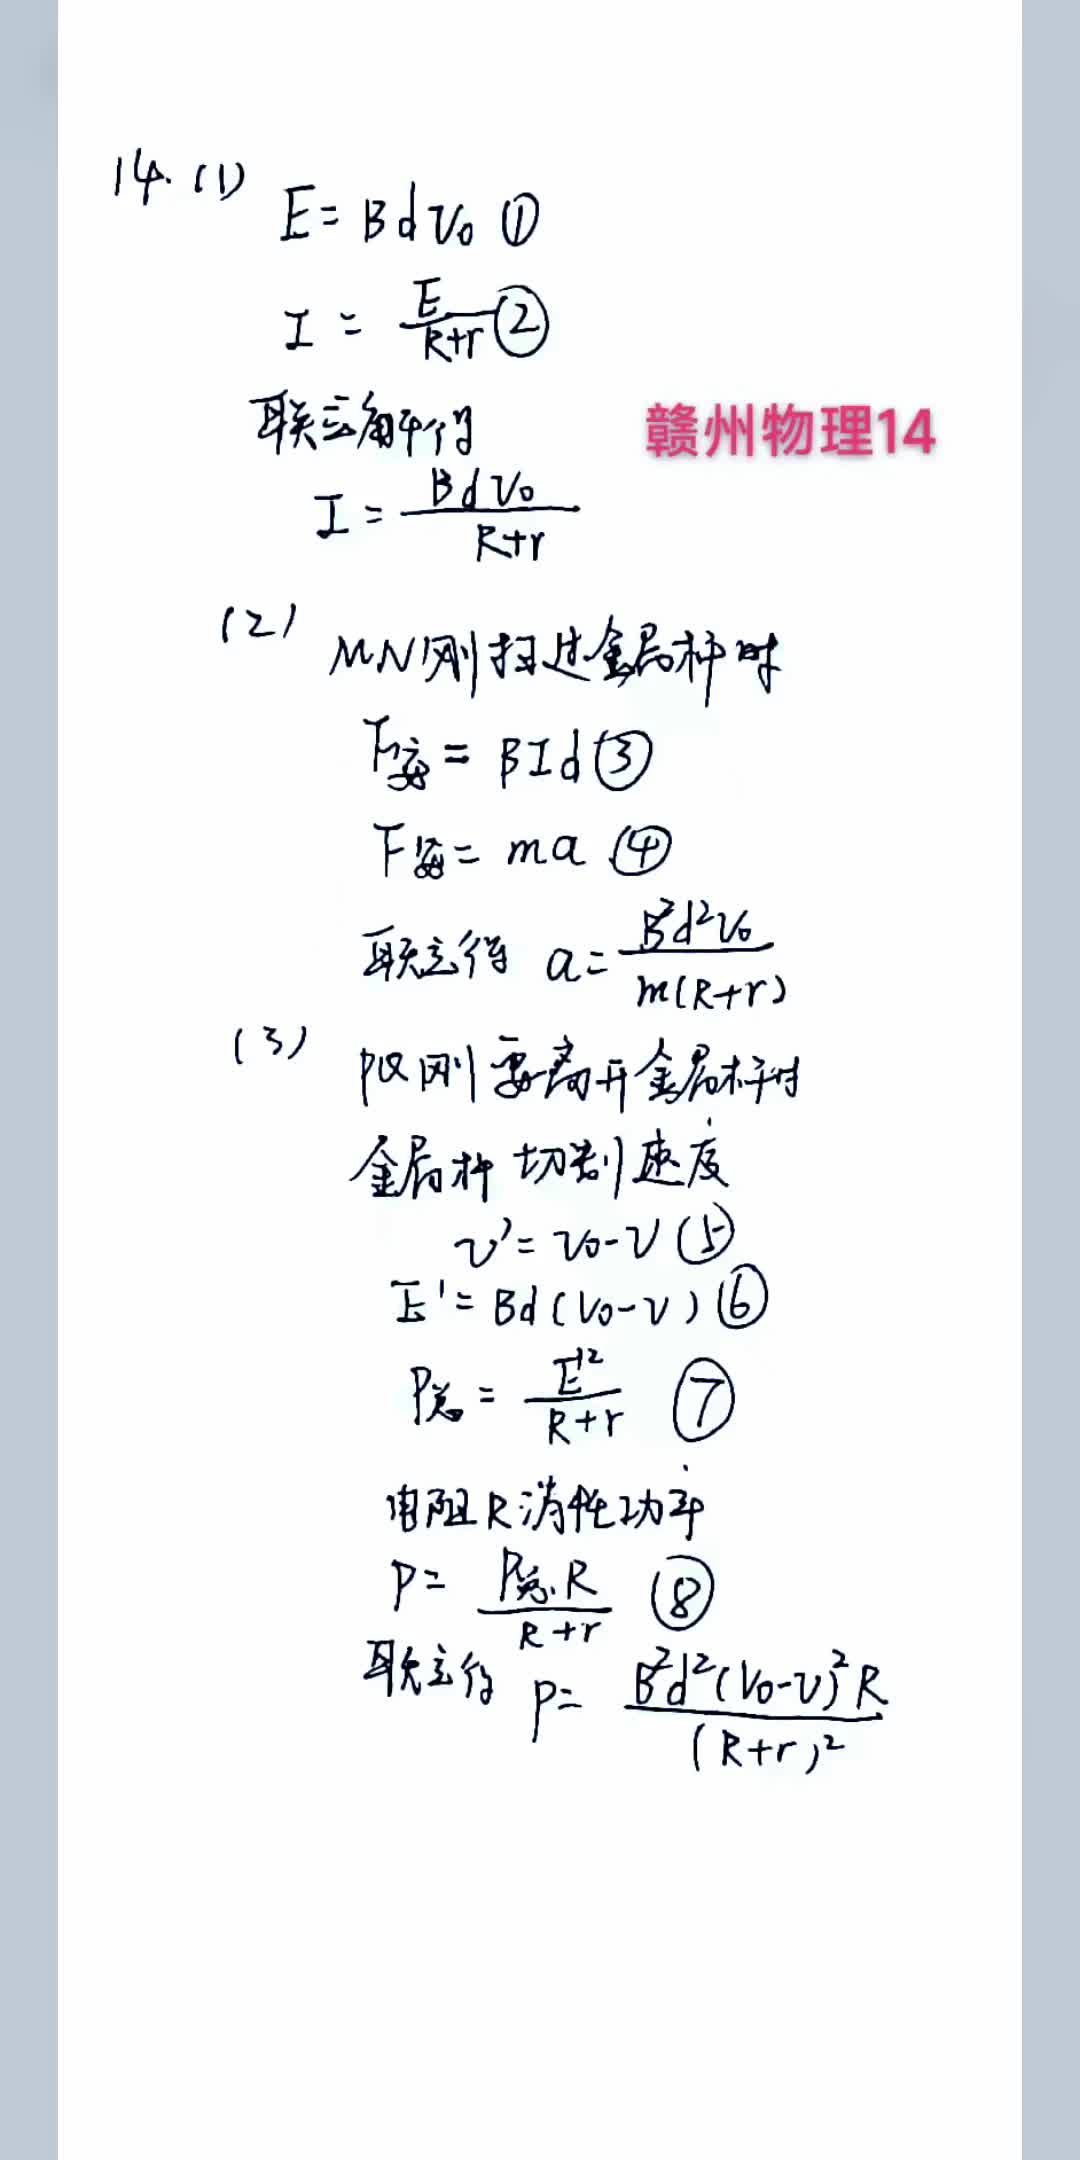 14. (1)
E = Bdv₀ ①
I = E/(R+r) ②
联立解得
赣州物理14
I = Bdv₀/(R+r)
(2)
MN刚扫过金属杆时
F安 = BId ③
F安 = ma ④
联立得 a = B²d²v₀/m(R+r)
(3)
PQ刚要离开金属杆时
金属杆切割速度
v' = v₀-v ⑤
E' = Bd(v₀-v) ⑥
P总 = E'²/(R+r) ⑦
电阻R消耗功率
P = P总·R/(R+r) ⑧
联立得 P = B²d²(v₀-v)²R/(R+r)²